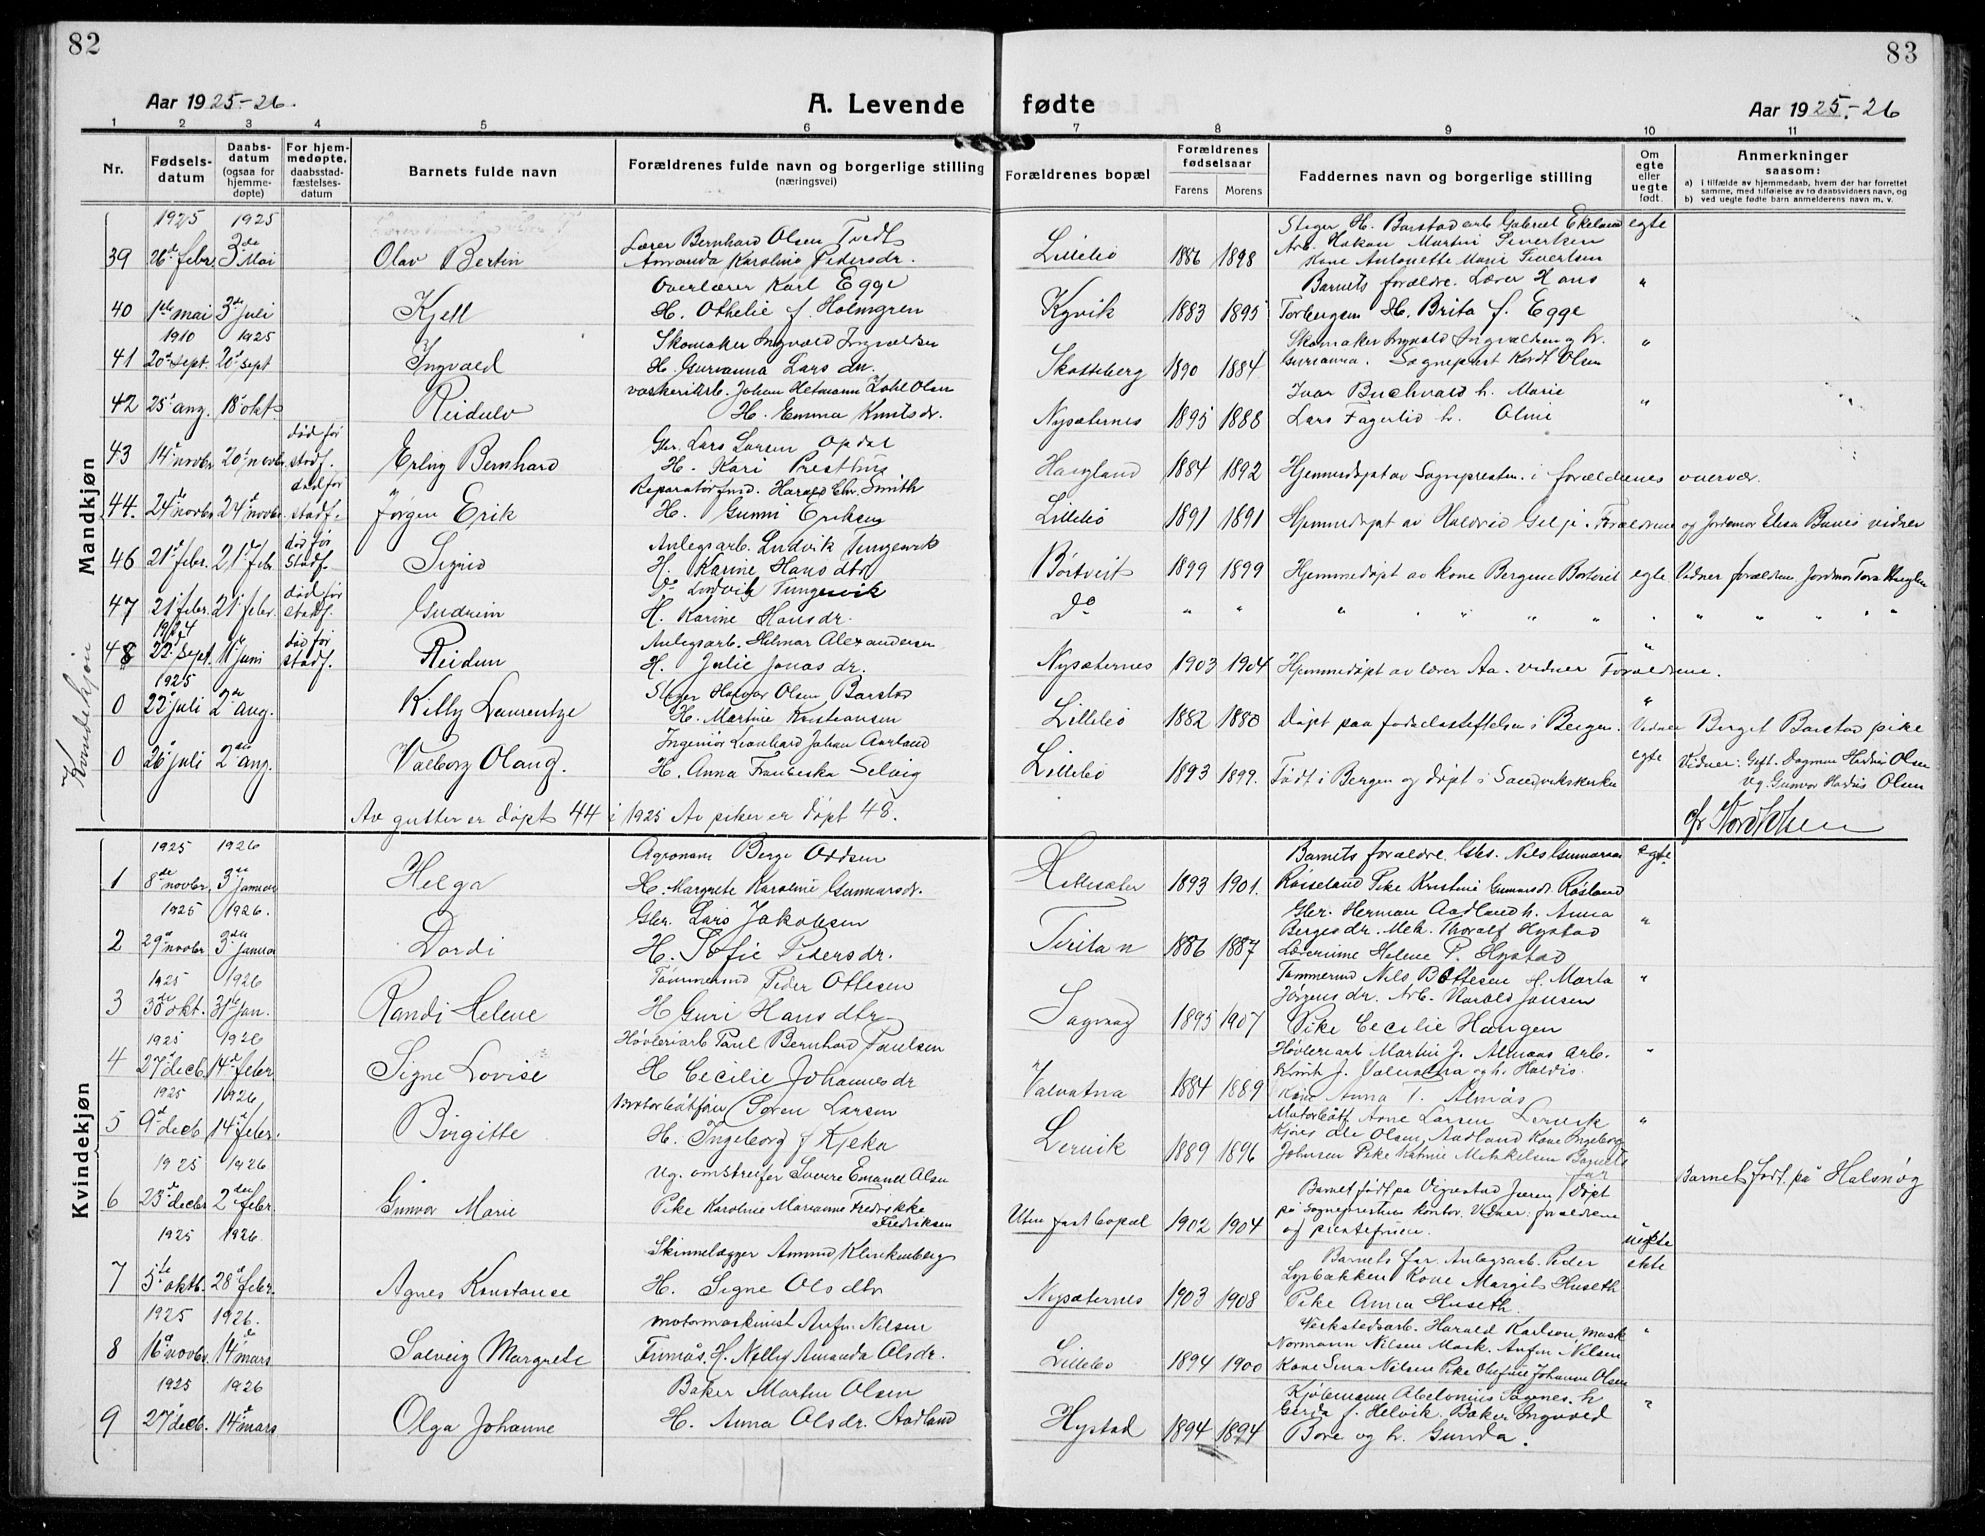 82
83
Aar 1925-26.
A. Levende fødte
Aar 1925.-26
1 2 3 4 5 6 7 8 9 10 11
Nr.
Fødsels-
datum
Daabs-
datum
(ogsaa for
hjemme-
døpte)
For hjem-
medøpte.
daabsstad-
fæstelses-
datum
Barnets fulde navn
Forældrenes fulde navn og borgerlige stilling
(næringsvei)
Forældrenes bopæl
Forældrenes
fødselsaar
Farens Morens
Faddernes navn og borgerlige stilling
Om
egte
eller
uegte
født.
Anmerkninger
saasom:
a) I tilfælde av hjemmedaab, hvem der har forrettet
samme, med tilføielse av to daabsvidners navn, og
b) ved uegte fødte barn anmelderens navn m. v.
Mandkjøn
1925 1925
39 26de febr. 3de Mai Olav Bertin
Lærer Bernhard Olsen Tvedt
Amanda Karoline Pedersdr.
Lillebø 1886 1898
Steger H. Barstad arb. Gabriel Ekeland
Arb. Hakon Martin Sivertsen
Kone Antonette Marie Sivertsen
egte
40 1ste mai 3de juli Kjell
Overlærer Karl Egge
H. Othelie f. Holmgren
Kyvik 1883 1895
Barnets forældre. Lærer Hans
Torbergsen H. Brita f. Egge
"
1910 1925
41 20de sept. 20de sept Ingvald
Skomaker Ingvald Ingvaldsen
H. Gurianna Lars dr.
Skotteberg 1890 1884
Skomaker Ingvald Ingvaldsen og h.
Gurianna. Sogneprest Kordt Olsen
"
42 25de aug. 18de okt. Reidulv
H. Emma Knutsdr.
Nysæternes 1895 1888
Ivar Buchvald h. Marie
Lars Fagerlid h. Oline
"
43 14de novbr. 20de novbr. død før stadf. Erling Bernhard
Gbr. Lars Larsen Opdal
H. Kari Presthus
Haugland 1884 1892
Hjemmedøpt av Sognepresten i forældrenes nærvær.
44. 24de novbr. 24de novbr. død før stadf. Jørgen Erik
Reparatørfmd. Harald Chr. Smith
H. Gunni Eriksen
Lillebø 1891 1891
Hjemmedøpt av Haldrid Gilje. Forældrene og Jordmor Elisa Bunes vidner
46 21de febr. 21de febr. død før stadf. Sigrid
Anlegsarb. Ludvik Tungesvik
H. Karine Hans dtr
Børtveit 1899 1899
Hjemmedøpt av Kone Bergine Bortveit
egte
Vidner forældrene, Jordmor Tora Hueglen
47 21de febr. 21de febr. død før stadf. Gudrun
Do Ludvik Tungesvik
H. Karine Hansdr.
Do " " " " " "
1924
48 22de sept. 11te juni død før stadf. Reidun
Anlegsarb. Hilmar Alexandersen
H. Julie Jonas dr.
Nysæternes 1903 1904
Hjemmedøpt av lærer Aa. vidner Forældrene.
"
Kvindekjøn
1925
0 22de juli 2den aug. Killy Laurentze
Steger Halvor Olsen Barstad
H. Martine Kristiansen
Lillebø 1882 1880
Døpt paa fødselsstiftelsen i Bergen. Vidner Berget Barstad pike
"
0 26de juli 2den aug. Valborg Olaug.
Ingeniør Leonhard Johan Aarland
H. Anna Franciska Selvig
Lillebø 1893 1899.
Født i Bergen og døpt i Sandvikskirken
egte
Vidner: Gift. Dagmar Hardis Olsen
ug. Gunvor Hardis Olsen
Av gutter er døpt 44 i 1925 Av piker er døpt 48.
Kvindekjøn
1925 1926
1 8de novbr. 3die januar Helga
Agronom Berge Oddsen
H. Margrete Karoline Gunnarsdr.
1893 1901.
Barnets forældre. Gbr. Nils Gunnarsen
Røiseland Pike Kristine Gunnarsdr. Røsland
egte
1925 1926.
2 29de novbr 3die januar Dordi
Gbr. Lars Jakobsen
H. Sofie Pedersdr.
Tveitan 1886 1887
Gbr. Herman Aadland h. Anna
Bergesdr. Mek. Thoralf Hystad
Lærerinne Helene P. Hystad
"
1925 1926
3 30de okt. 31te jan. Randi Helene
Tømmermd Peder Ottesen
H Guri Hans dtr
Sagvag 1895 1907
Tømmermd Nils Ottesen H. Marta
Jørgens dr. Arb. Harald Jansen
Pike Cecilie Haugen
"
1925 1926
4 27de decb. 14de febr Signe Lovise
Høvleriarb Paul Bernhard Paulsen
H Cecilie Johannes dr
Valvatna 1884 1889
Høvleriarb Martin J. Almaas Arb.
J. Valvatna og h. Haldis.
Kone Anna T. Almås
"
1925 1926
5 9de decb 14de febr. Birgitte
Motorbåtfører Søren Larsen
H. Ingeborg f Kjeka
Lervik 1889 1896
Motorbåtf. Arne Larsen Lervik
Kjøres Ole Olsen, Aadland Kone Ingeborg
Johnsen Pike Katrine Mikkelsen Barnets
far
"
1925 1926
6 23de decbr 2den febr. Gunvor Marie
Ug. omstreifer Sverre Emanuel Olsen
Pike Karoline Marianne Fredrikke
Fredriksen
Uten fast bopæl 1902 1904
Barnet født på Vigrestad Jæren / Døpt
på Sogneprestens kontor. Vidner: forældrene
og prestefruen.
uekte
Barnet født på Halsnøy
1925 1926.
7 5te oktb. 28de febr. Agnes Konstanse
Skinnelægger Amund Klinkenberg
H. Signe Ols dtr
Nysæternes 1903 1908
Barnets far Anlegsarb. Peder
Lysbakken Kone Margit Huseth
Pike Anna Huseth.
ekte
1925 1926.
8 16de novbr. 14de mars Solveig Margrete
Motormaskinist Anfin Nilsen
Fumås. H. Nelly Amanda Olsdr.
Lillebø 1894 1900
Verkstedsarb. Harald Karlsen, mask
Normann Nilsen Mask. Anfin Nilsen
Kone Sina Nilsen Pike Olefine Johanne Olsen
"
1925 1926
9 27de decb. 14de mars Olga Johanne
Baker Martin Olsen
H. Anna Olsdr. Aadland
Hystad 1894 1894
Kjøbmann Abelonius Sagenes. h
Gerda f. Helvik. Baker Ingvald
Bore og h. Gunda.
"